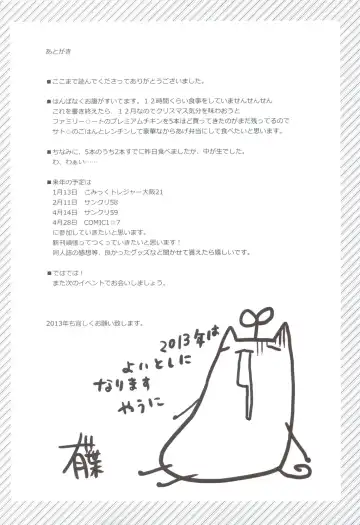 あとがき
■ここまで読んでくださってありがとうございました。
■はんぱなくお腹がすいてます。12時間くらい食事をしていませんせんせん
これを書き終えたら、12月なのでクリスマス気を味わおうと
ファミリー☆ートのプレミアムチキンを5本ほど買ってきたのがまだ残ってるので
サト☆のごはんとレンチンして豪華なからあげ弁当にして食べたいと思います。
■ちなみに、5本のうち2本すでに昨日食べましたが、中が生でした。
わ、わぁぃ……
■来年の予定は
1月13日　こみっくトレジャー大阪21
2月11日　サンクリ58
4月14日　サンクリ59
4月28日　COMIC1☆7
に参加していきたいと思います。
新刊頑張ってつくっていきたいと思います！
同人誌の感想等、良かったグッズなど聞かせて貰えたら嬉しいです。
■ではでは！
また次のイベントでお会いしましょう。
2013年も宜しくお願い致します。
2013年は
よいとしに
なります
やうに
有葉